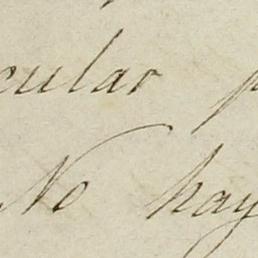 cular p
No hay